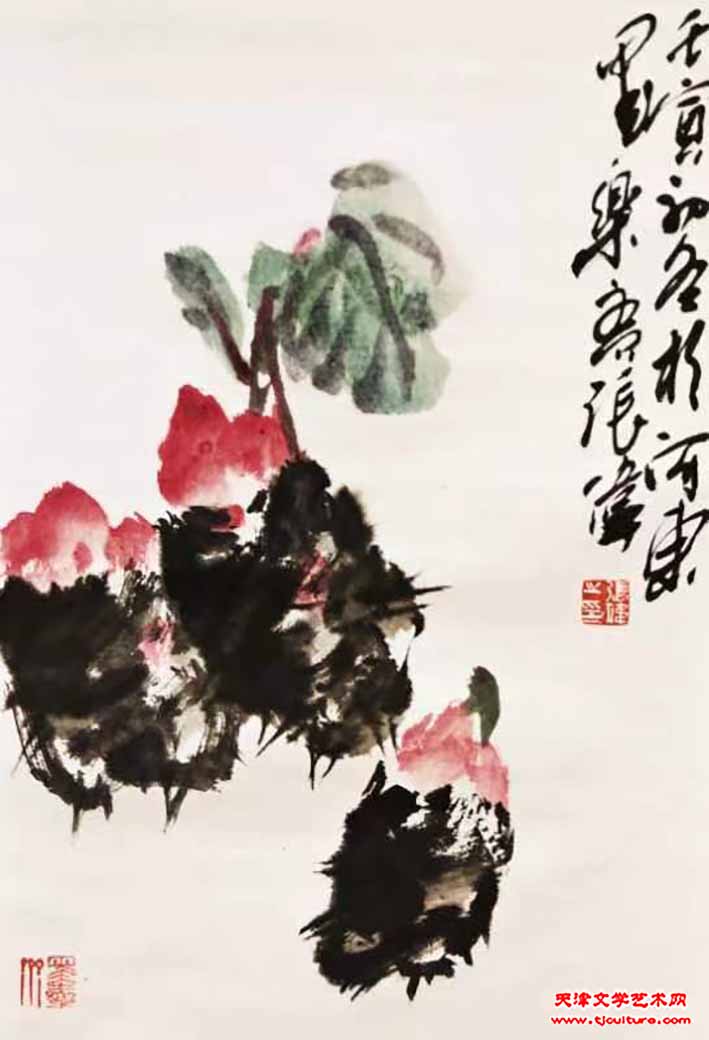 壬寅初冬於河東
墨樂齋張偉
天津文学艺术网
www.tjculture.com